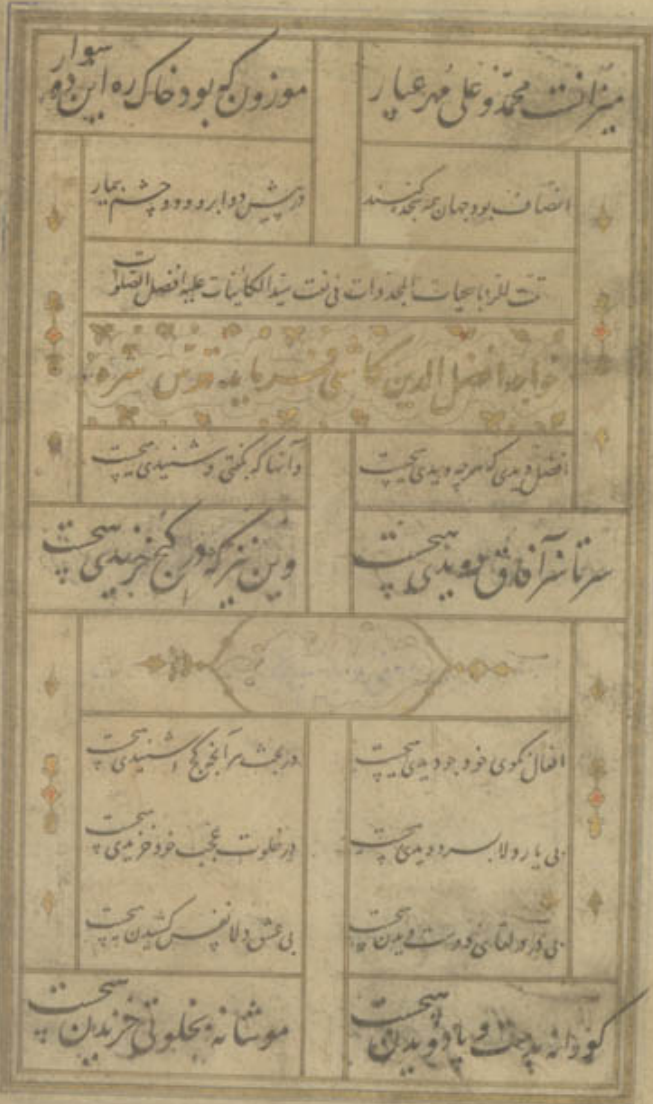 میزانست محمد و علی مهر عیار
موزون که بود خاک ره این دو سوار
انصاف بود جهان همه سجده کنند
در پیش دو ابرو و دو چشم بیمار
فی نعت سید الکائنات علیه افضل الصلوات
خواجه افضل الدین کاشی فرماید قدس سره
افضل دیدی که هرچه دیدی هیچست
وآنها که بگفتی و شنیدی هیچست
سر تا سر آفاق دویدی هیچست
وین نیز که در کنج خزیدی هیچست
افعال نکوی خود چو دیدی هیچست
در بحث هر آنچه شنیدی هیچست
بی یار دلا بسر دویدی هیچست
در خلوت عجب خود خزیدی هیچست
بی لقای دوست دیدن هیچست
بی عشق دلا نفس کشیدن هیچست
کورانه و پا دویدن هیچست
موشانه بخلوتی خزیدن هیچست